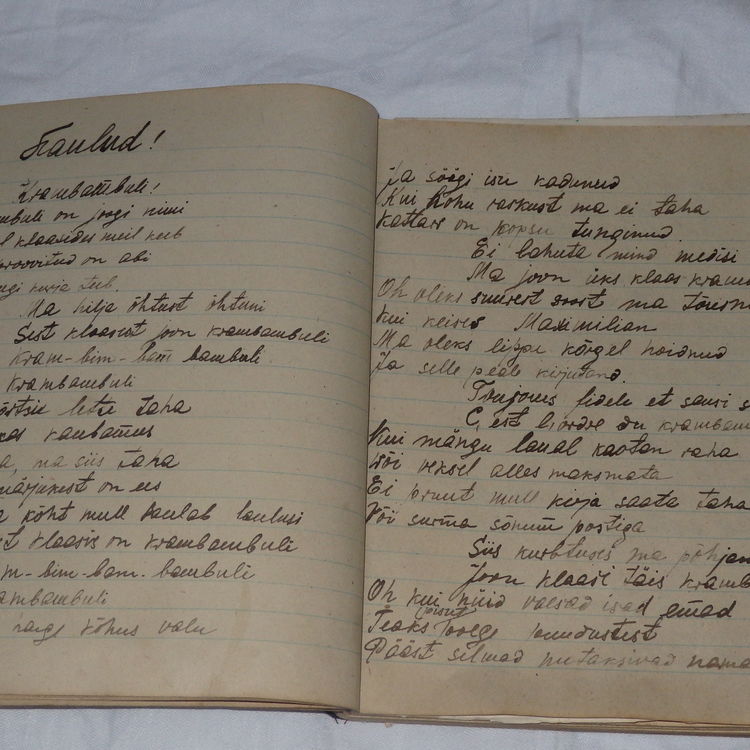 Laulud!
Krambambuli!
on joogi nimi
klaasides meil keeb
on abi
Ma hilja õhtust õhtuni
Sest klaasist joon krambambuli
Kram-bim-bam bambuli
Krambambuli
letse taha
kaubamus
na siis taha
on ees
köht mull laulab laulusi
klaasis on krambambuli
m-bim-bam-bambuli
ambambuli
kõhus valu
Ja söögi isu kadunud
Kui kohu raskust ma ei taha
Kattars on kopsu tunginud.
Ei lahuta mind medisi
Ma joon üks klaas kram
Oh oleks suurest soost ma
Kui keiser Maximilian
Ma oleks lippu kõrgel hoidnud
Ja selle peale kirjutand.
Toujours fidele et sansi s
C'est l'ordre du krambam
Kui mängu laual kaotan raha
Või veksel alles maksmata
Ei pruut mull kirja saata taha
Või surma sõnum postiga
Siis kurbtuses ma põhjan
Joon klaasi täis kramb
Oh kui nüid vaesad isad emad
Teaks poisist poege puudustest
Pääst silmad